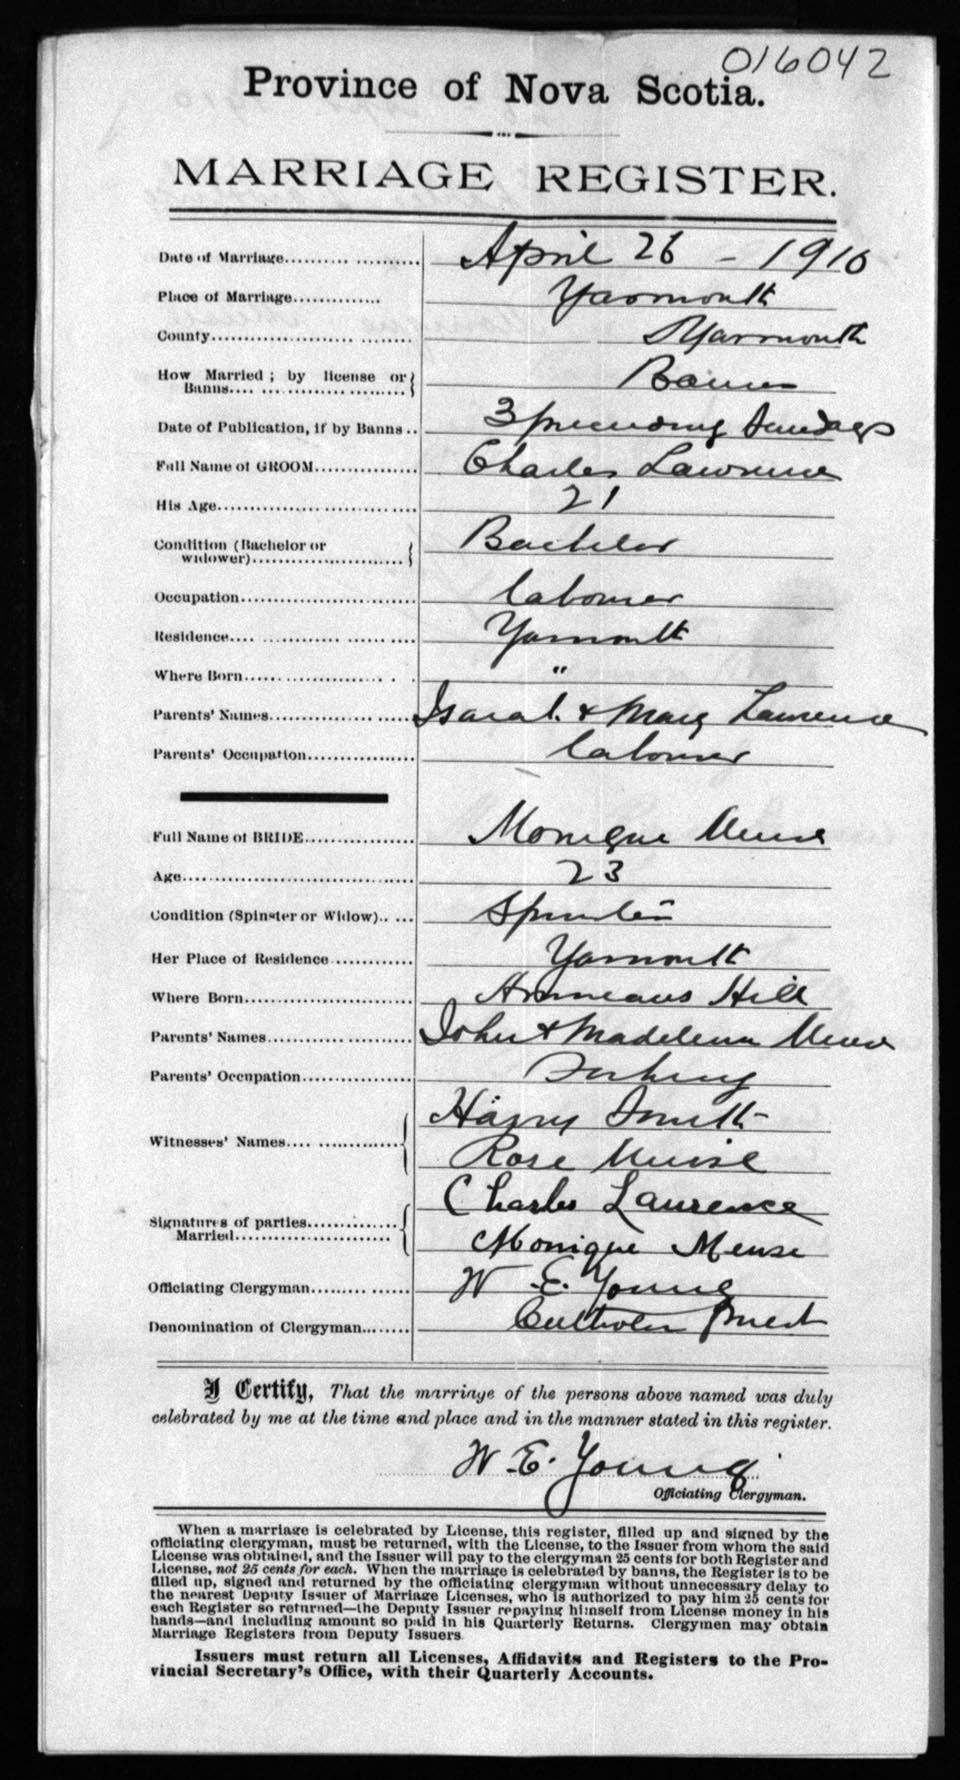 016042
Province of Nova Scotia.
MARRIAGE REGISTER.
Date of Marriage.......... April 26 - 1910
Place of Marriage.............. Yarmouth
County.......................... Yarmouth
How Married; by license or Banns.... Banns
Date of Publication, if by Banns.. 3 preceeding Sundays
Full Name of GROOM............... Charles Lawrence
His Age............................ 21
Condition (Bachelor or widower)........................ Bachelor
Occupation......................... Labourer
Residence.... Yarmouth
Where Born.... "
Parents' Names...................... & Mary Lawrence
Parents' Occupation................ Labourer
Full Name of BRIDE................ Monique Meuse
Age................................ 23
Condition (Spinster or Widow)..... Spinster
Her Place of Residence............ Yarmouth
Where Born......................... Amiraults Hill
Parents' Names..................... John & Meuse
Parents' Occupation................
Witnesses' Names.... Harry Smith
Rose Muise
Signatures of parties Married.............. Charles Laurence
Monique Meuse
Officiating Clergyman............. W. E. Young
Denomination of Clergyman........ Catholic Priest
I Certify, That the marriage of the persons above named was duly
celebrated by me at the time and place and in the manner stated in this register.
W. E. Young
Officiating Clergyman.
When a marriage is celebrated by License, this register, filled up and signed by the
officiating clergyman, must be returned, with the License, to the Issuer from whom the said
License was obtained, and the Issuer will pay to the clergyman 25 cents for both Register and
License, not 25 cents for each. When the marriage is celebrated by banns, the Register is to be
filled up, signed and returned by the officiating clergyman without unnecessary delay to
the nearest Deputy Issuer of Marriage Licenses, who is authorized to pay him 25 cents for
each Register so returned—the Deputy Issuer repaying himself from License money in his
hands—and including amount so paid in his Quarterly Returns. Clergymen may obtain
Marriage Registers from Deputy Issuers.
Issuers must return all Licenses, Affidavits and Registers to the Pro-
vincial Secretary's Office, with their Quarterly Accounts.